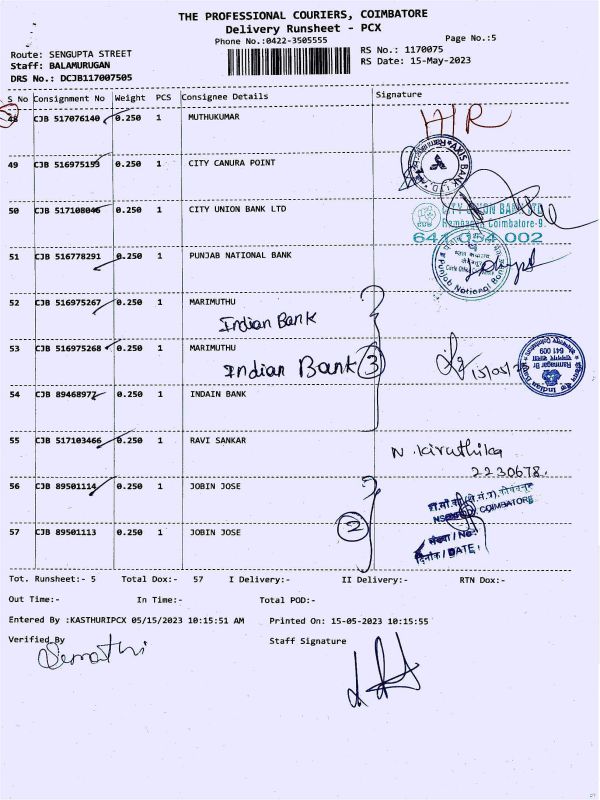 THE PROFESSIONAL COURIERS, COIMBATORE
Delivery Runsheet - PCX
Phone No.:0422-3505555
Page No.:5
Route: SENGUPTA STREET
RS No.: 1170075
Staff: BALAMURUGAN
RS Date: 15-May-2023
DRS No.: DCJB117007505
S No Consignment No Weight PCS Consignee Details Signature
48 CJB 517076140 0.250 1 MUTHUKUMAR
49 CJB 516975153 0.250 1 CITY CANURA POINT
AXIS BANK
50 CJB 517108046 0.250 1 CITY UNION BANK LTD
CITY UNION BANK LTD
Coimbatore-9.
641 054 002
51 CJB 516778291 0.250 1 PUNJAB NATIONAL BANK
Punjab National Bank
52 CJB 516975267 0.250 1 MARIMUTHU
Indian Bank
53 CJB 516975268 0.250 1 MARIMUTHU
Indian Bank 3
15/05/23
641 009
54 CJB 89468972 0.250 1 INDAIN BANK
55 CJB 517103466 0.250 1 RAVI SANKAR
N. Kiruthika
2230678.
56 CJB 89501114 0.250 1 JOBIN JOSE
COIMBATORE
57 CJB 89501113 0.250 1 JOBIN JOSE
2
संख्या / No.
दिनांक / DATE :
Tot. Runsheet:- 5 Total Dox:- 57 I Delivery:- II Delivery:- RTN Dox:-
Out Time:- In Time:- Total POD:-
Entered By :KASTHURIPCX 05/15/2023 10:15:51 AM Printed On: 15-05-2023 10:15:55
Verified By Staff Signature